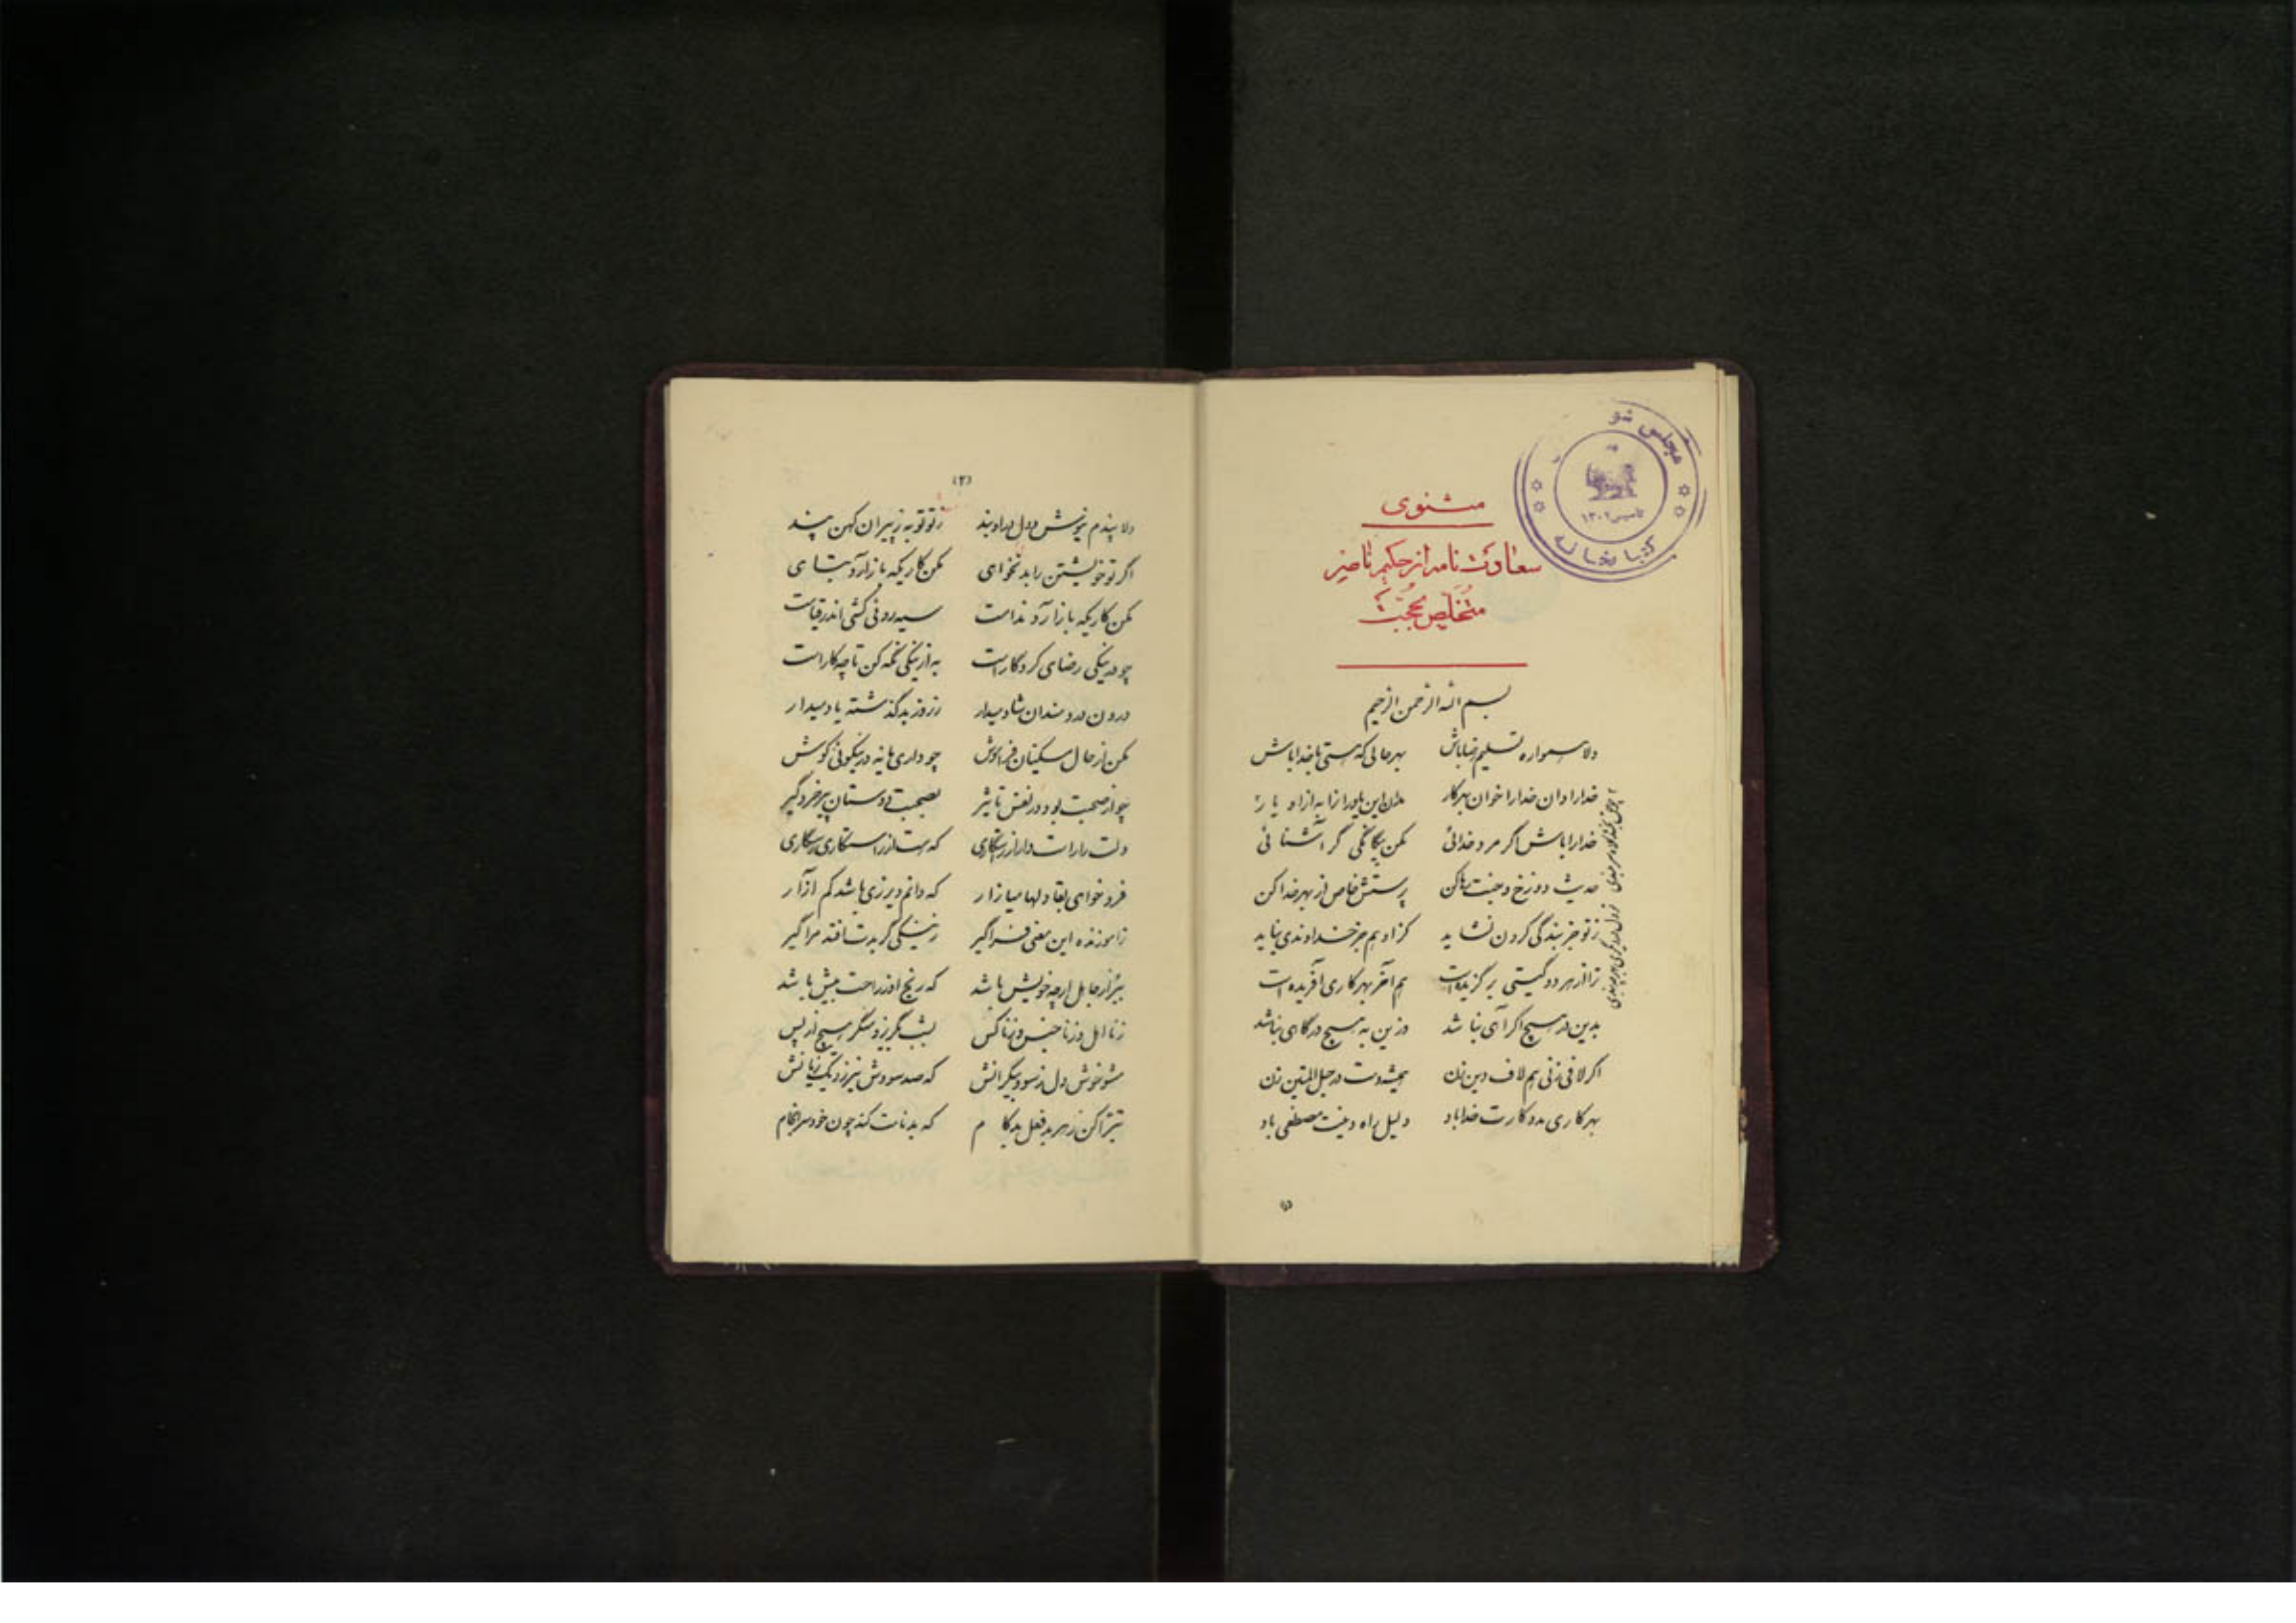 مثنوی
سعادت نامه از حکیم ناصر
متخلص بحجت
مجلس شو
تاسیس ۱۳۰۲
کتابخانه
بسم الله الرحمن الرحیم
دلا همواره تسلیم رضا باش بهر حالی که هستی با خدا باش
خدارا دان خدارا خوان بهر کار مدان این یاوررا زا به از او یار
خدارا باش اگر مرد خدائی مکن بیگانگی گر آشنائی
حدیث دوزخ و جنت رها کن پرستش خاص از بهر خدا کن
ز تو جز بندگی کردن نشاید کز او هم جز خداوندی نیاید
ترا از هر دو گیتی برگزیده است هم آخر بهر کاری آفریده است
بدین در هیچ اگر آهی نباشد وزین به هیچ درگاهی نباشد
اگر لافی زنی هم لاف دین زن همیشه دست در حبل المتین زن
بهر کاری مددکارت خدا باد دلیل راه دینت مصطفی باد
(۱)
(۲)
دلا پندم نیوش و دل بدو بند ز تو توبه ز پیران کهن پند
اگر تو خویشتن را بد نخواهی مکن کاریکه بازآرد تباهی
مکن کاریکه بازآرد ندامت سیه روئی کشی اندر قیامت
چو در نیکی رضای کردگار است به از نیکی نگه کن تا چه کار است
درون دردمندان شاد میدار ز روز بد گذشته یاد میدار
مکن از حال مسکینان فراموش چو داری مایه در نیکوئی کوش
چو از صحبت بود در نفس تاثیر بصحبت دوستان پر خرد گیر
دلت را راست دار از رستگاری که هست از راستکاری رستگاری
فزو خواهی بقا دلها میازار که دانم دیرزی باشد کم آزار
ز آموزنده این معنی فراگیر ز نیکی گر بدت افتد مرا گیر
ببر از جاهل ارچه خویش باشد که رنج او ز راحت بیش باشد
ز نااهل و ز ناجنس و ز ناکس بشب بگریز و منگر هیچ از پس
مشو خوش دل ز سود بیکرانش که صد سودش نیرزد یک زیانش
تبرا کن ز هر بدفعل بدکام که بدنامت کند چون خود سرانجام